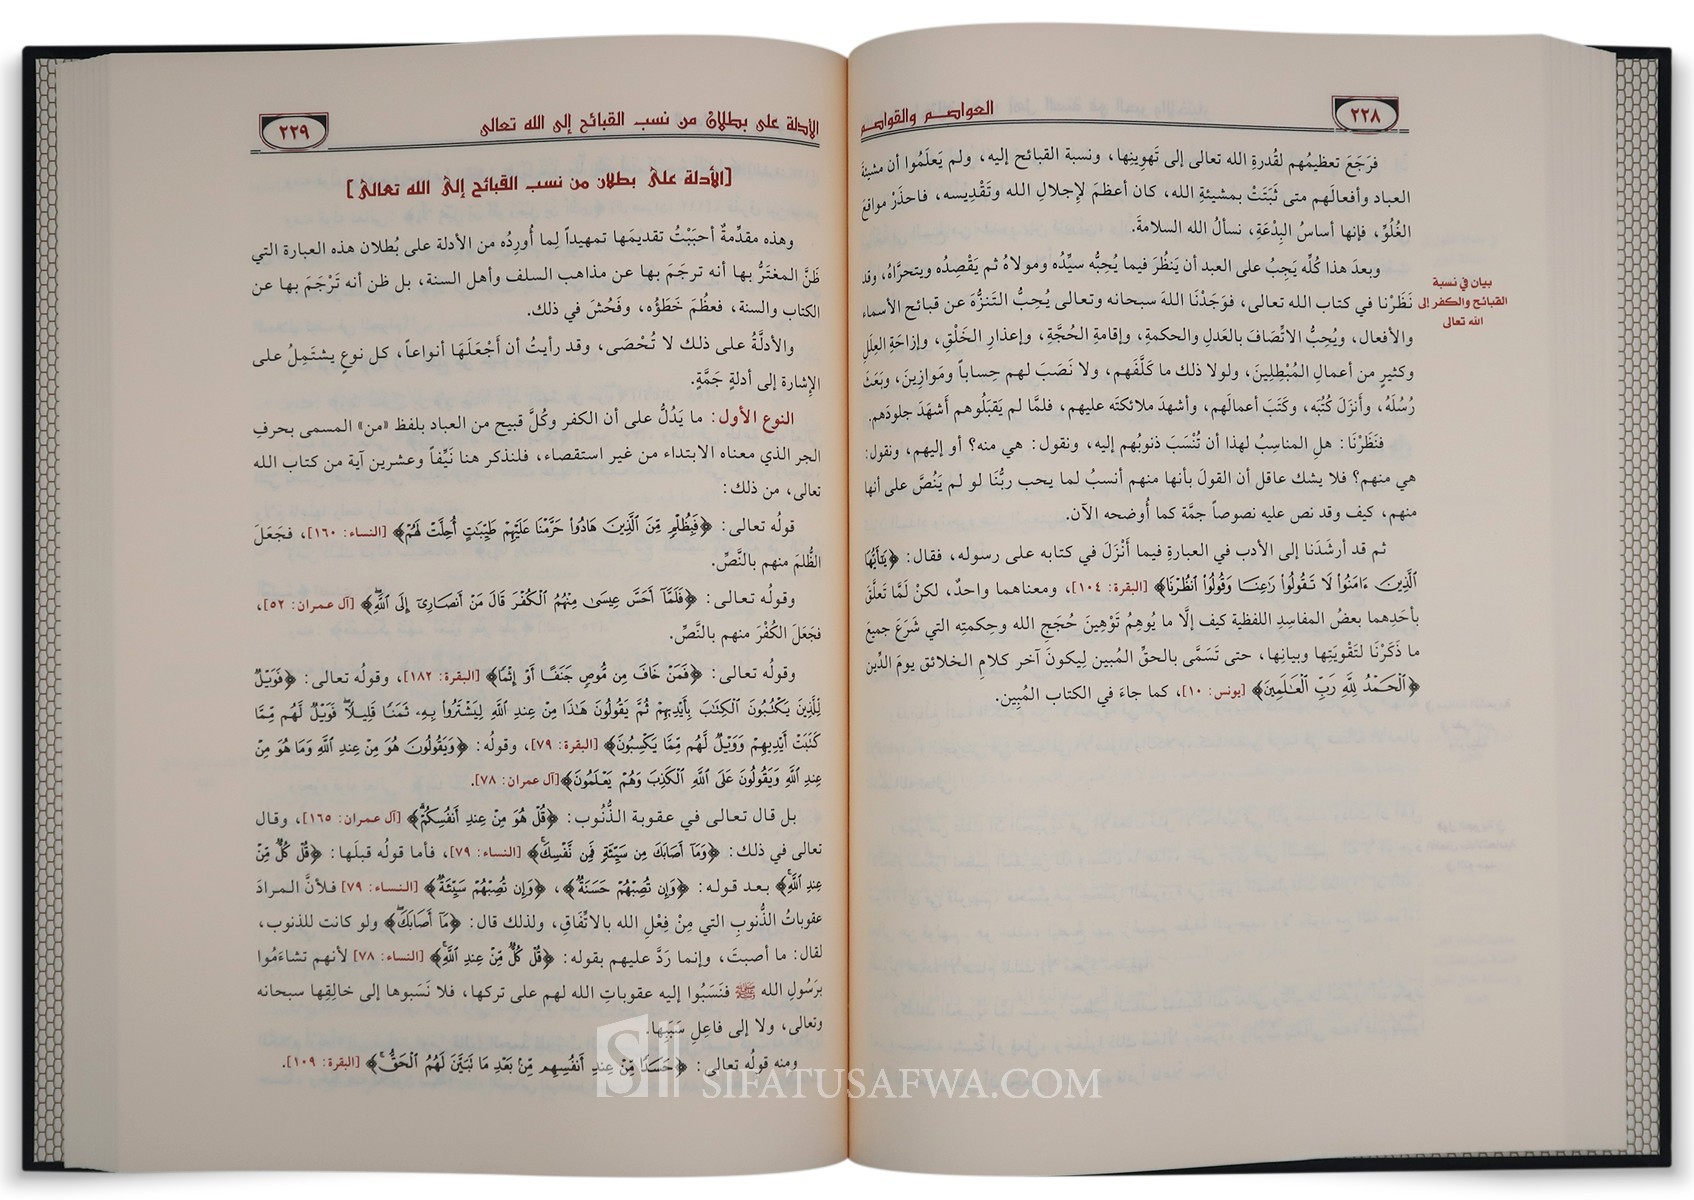 ٢٢٨
العواصم والقواصم
فرَجَعَ تعظيمُهم لقُدرةِ الله تعالى إلى تَهوينِها، ونسبة القبائح إليه، ولم يَعلَمُوا أن مشيئةَ
العباد وأفعالَهم متى ثَبَتَتْ بمشيئةِ الله، كان أعظمَ لإجلالِ الله وتَقْدِيسه، فاحذَرْ مواقعَ
الغُلُوِّ، فإنها أساسُ البِدْعَةِ، نسألُ الله السلامةَ.
وبعدَ هذا كُلِّه يَجِبُ على العبد أن يَنظُرَ فيما يُحِبُّه سيِّدُه ومولاهُ ثم يَقْصِدُه ويتحرَّاهُ، وقد
بيان في نسبة
القبائح والكفر إلى
الله تعالى
نَظَرْنا في كتاب الله تعالى، فوَجَدْنَا اللهَ سبحانه وتعالى يُحِبُّ التَنزُّهَ عن قبائح الأسماء
والأفعال، ويُحِبُّ الاتِّصَافَ بالعَدلِ والحكمةِ، وإقامةِ الحُجَّةِ، وإعذارِ الخَلْقِ، وإزاحَةِ العِلَلِ
وكثيرٍ من أعمالِ المُبْطِلِينَ، ولولا ذلك ما كَلَّفَهم، ولا نَصَبَ لهم حِساباً ومَوازِينَ، وبَعَثَ
رُسُلَهُ، وأَنزَلَ كُتُبَه، وكَتَبَ أعمالَهم، وأشهدَ ملائكتَه عليهم، فلمَّا لم يَقبَلُوهم أَشهَدَ جلودَهم.
فنَظَرْنَا: هلِ المناسِبُ لهذا أن تُنْسَبَ ذنوبُهم إليه، ونقول: هي منه؟ أو إليهم، ونقول:
هي منهم؟ فلا يشك عاقل أن القولَ بأنها منهم أنسبُ لما يحب ربُّنَا لو لم يَنُصَّ على أنها
منهم، كيف وقد نص عليه نصوصاً جمَّة كما أُوضحه الآن.
ثم قد أرشَدَنا إلى الأدب في العبارةِ فيما أَنْزَلَ في كتابه على رسوله، فقال: ﴿يَٰٓأَيُّهَا
ٱلَّذِينَ ءَامَنُوا۟ لَا تَقُولُوا۟ رَٰعِنَا وَقُولُوا۟ ٱنظُرْنَا﴾ [البقرة: ١٠٤]، ومعناهما واحدٌ، لكنْ لَمَّا تَعلَّقَ
بأحَدِهما بعضُ المفاسِدِ اللفظية كيف إلَّا ما يُوهِمُ تَوْهِينَ حُجَجِ الله وحِكمتِه التي شَرَعَ جميعَ
ما ذَكَرْنَا لتَقْوِيَتِها وبيانِها، حتى تَسَمَّى بالحقِّ المُبين لِيكونَ آخر كلامِ الخلائق يومَ الدِّين
﴿ٱلْحَمْدُ لِلَّهِ رَبِّ ٱلْعَٰلَمِينَ﴾ [يونس: ١٠]، كما جاءَ في الكتاب المُبِين.
الأدلة على بطلان من نسب القبائح إلى الله تعالى
٢٢٩
[الأدلة على بطلان من نسب القبائح إلى الله تعالى]
وهذه مقدِّمةٌ أحبَبْتُ تقديمَها تمهيداً لِما أُورِدُه من الأدلة على بُطلان هذه العبارة التي
ظَنَّ المغتَرُّ بها أنه ترجَمَ بها عن مذاهب السلف وأهل السنة، بل ظن أنه تَرْجَمَ بها عن
الكتاب والسنة، فعظُمَ خَطَؤُه، وفَحُشَ في ذلك.
والأدلَّةُ على ذلك لا تُحْصَى، وقد رأيتُ أن أَجْعَلَهَا أنواعاً، كل نوعٍ يشتَمِلُ على
الإشارة إلى أدلةٍ جَمَّةٍ.
النوع الأول: ما يَدُلُّ على أن الكفر وكُلَّ قبيح من العباد بلفظ «من» المسمى بحرفِ
الجر الذي معناه الابتداء من غير استقصاء، فلنذكر هنا نَيِّفاً وعشرين آية من كتاب الله
تعالى، من ذلك:
قولُه تعالى: ﴿فَبِظُلْمٍ مِّنَ ٱلَّذِينَ هَادُوا۟ حَرَّمْنَا عَلَيْهِمْ طَيِّبَٰتٍ أُحِلَّتْ لَهُمْ﴾ [النساء: ١٦٠]، فجَعَلَ
الظُّلمَ منهم بالنَّصِّ.
وقولُه تعالى: ﴿فَلَمَّآ أَحَسَّ عِيسَىٰ مِنْهُمُ ٱلْكُفْرَ قَالَ مَنْ أَنصَارِىٓ إِلَى ٱللَّهِ﴾ [آل عمران: ٥٢]،
فجَعَلَ الكُفْرَ منهم بالنَّصِّ.
وقولُه تعالى: ﴿فَمَنْ خَافَ مِن مُّوصٍ جَنَفًا أَوْ إِثْمًا﴾ [البقرة: ١٨٢]، وقولُه تعالى: ﴿فَوَيْلٌ
لِّلَّذِينَ يَكْتُبُونَ ٱلْكِتَٰبَ بِأَيْدِيهِمْ ثُمَّ يَقُولُونَ هَٰذَا مِنْ عِندِ ٱللَّهِ لِيَشْتَرُوا۟ بِهِۦ ثَمَنًا قَلِيلًا فَوَيْلٌ لَّهُم مِّمَّا
كَتَبَتْ أَيْدِيهِمْ وَوَيْلٌ لَّهُم مِّمَّا يَكْسِبُونَ﴾ [البقرة: ٧٩]، وقولُه: ﴿وَيَقُولُونَ هُوَ مِنْ عِندِ ٱللَّهِ وَمَا هُوَ مِنْ
عِندِ ٱللَّهِ وَيَقُولُونَ عَلَى ٱللَّهِ ٱلْكَذِبَ وَهُمْ يَعْلَمُونَ﴾ [آل عمران: ٧٨].
بل قال تعالى في عقوبة الذُّنُوب: ﴿قُلْ هُوَ مِنْ عِندِ أَنفُسِكُمْ﴾ [آل عمران: ١٦٥]، وقال
تعالى في ذلك: ﴿وَمَآ أَصَابَكَ مِن سَيِّئَةٍ فَمِن نَّفْسِكَ﴾ [النساء: ٧٩]، فأما قولُه قبلَها: ﴿قُلْ كُلٌّ مِّنْ
عِندِ ٱللَّهِ﴾ بعد قوله: ﴿وَإِن تُصِبْهُمْ حَسَنَةٌ﴾، ﴿وَإِن تُصِبْهُمْ سَيِّئَةٌ﴾ [النساء: ٧٩] فلأنَّ المرادَ
عقوباتُ الذُّنوبِ التي مِنْ فِعْلِ الله بالاتِّفَاقِ، ولذلك قال: ﴿مَآ أَصَابَكَ﴾ ولو كانت للذنوب،
لقال: ما أصبتَ، وإنما رَدَّ عليهم بقوله: ﴿قُلْ كُلٌّ مِّنْ عِندِ ٱللَّهِ﴾ [النساء: ٧٨] لأنهم تشاءَمُوا
برَسُولِ الله ﷺ فنَسَبُوا إليه عقوباتِ الله لهم على تركها، فلا نَسَبوها إلى خالِقِها سبحانه
وتعالى، ولا إلى فاعِلِ سَبَبِها.
ومنه قولُه تعالى: ﴿حَسَدًا مِّنْ عِندِ أَنفُسِهِم مِّنۢ بَعْدِ مَا تَبَيَّنَ لَهُمُ ٱلْحَقُّ﴾ [البقرة: ١٠٩].
SIFATUSAFWA.COM